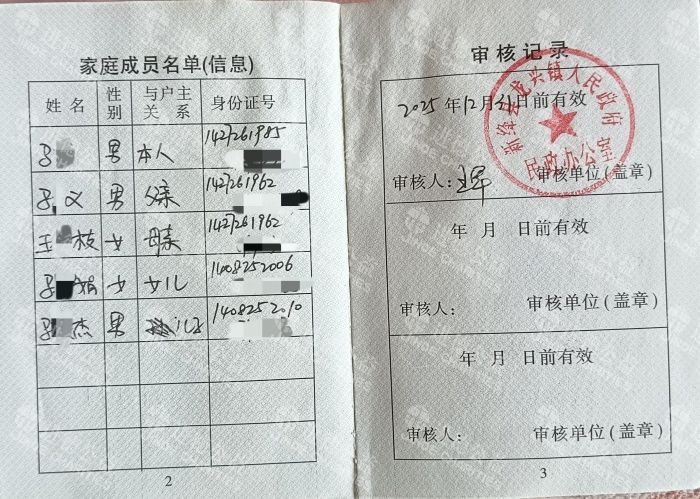 家庭成员名单(信息)
姓名 性别 与户主关系 身份证号
男 本人 1427261985
义 男 父亲 1427261962
王 枝 女 母亲 1427261962
女 女儿 1408252006
杰 男 儿子 1408252010
2
审核记录
2025年12月31日前有效
新绛县龙兴镇人民政府
民政办公室
审核人： 审核单位(盖章)
年 月 日前有效
审核人： 审核单位(盖章)
年 月 日前有效
审核人： 审核单位(盖章)
3